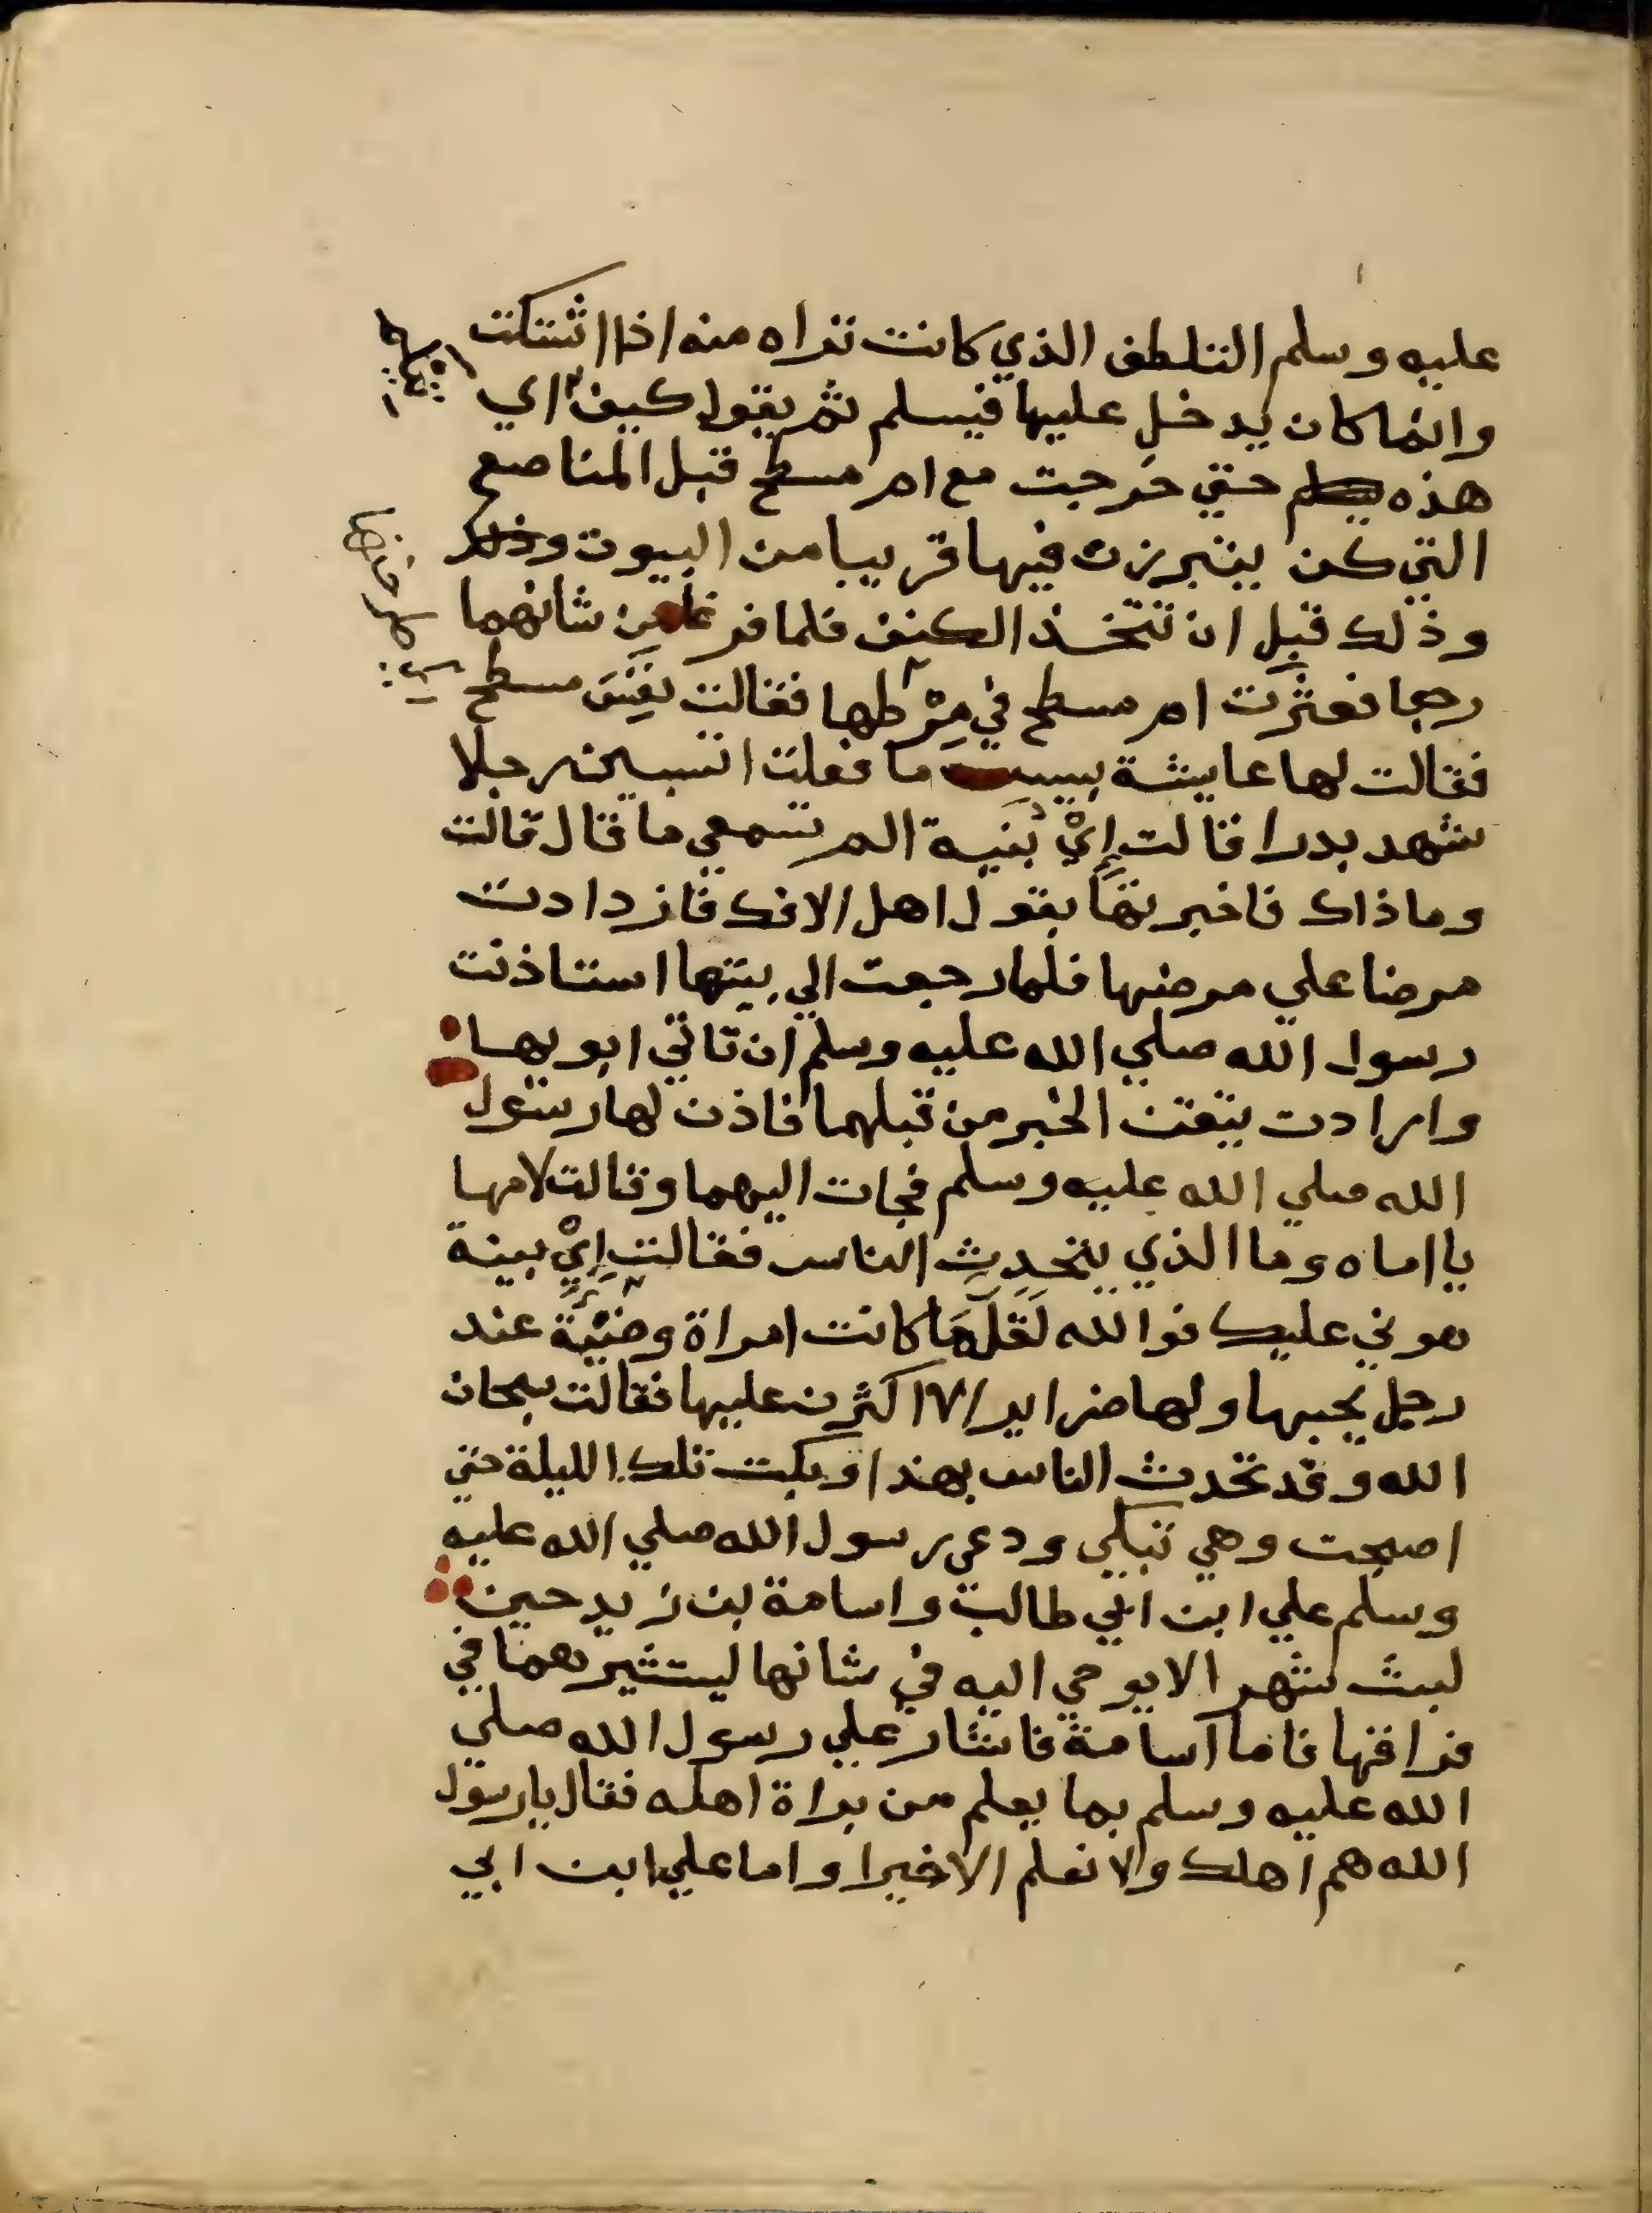 عليه وسلم التلطف الذي كانت تراه منه اذا اشتكت
وانما كان يدخل عليها فيسلم ثم يقول كيف اي
هذه حتي خرجت مع ام مسطح قبل المناصع
التي كن يتبرزن فيها قريبا من البيوت وذلك
وذلك قبل ان تتخذ الكنف فلما فرغا من شانهما
رجعا فعثرت ام مسطح في مِرْطها فقالت تعِسَ مسطح
فقالت لها عايشة بيس ما فعلت اتسبين رجلا
شهد بدرا قالت اِيْ بنية الم تسمعي ما قال قالت
وما ذاك فاخبرتها بقول اهل الافك فازدادت
مرضا علي مرضها فلما رجعت الي بيتها استاذنت
رسول الله صلي الله عليه وسلم ان تاتي ابويها
وارادت يتقن الخبر من قبلهما فاذن لها رسول
الله صلي الله عليه وسلم فجات اليهما وقالت لامها
يا اماه وما الذي يتحدث الناس فقالت اِيْ بينة
هوني عليك فوالله لَقَلَّمَا كانت امراة وضيّة عند
رجل يحبها ولها ضراير الا اكثرن عليها فقالت سبحان
الله وقد تحدث الناس بهذا وبكت تلك الليلة حتي
اصبحت وهي تبكي ودعي رسول الله صلي الله عليه
وسلم علي ابن ابي طالب واسامة بن زيد حين
لبث شهر الا يوحي اليه في شانها ليستشيرهما في
فراقها فاما اسامة فاشار علي رسول الله صلي
الله عليه وسلم بما يعلم من براة اهله فقال يا رسول
الله هم اهلك ولا نعلم الا خيرا واما علي ابن ابي